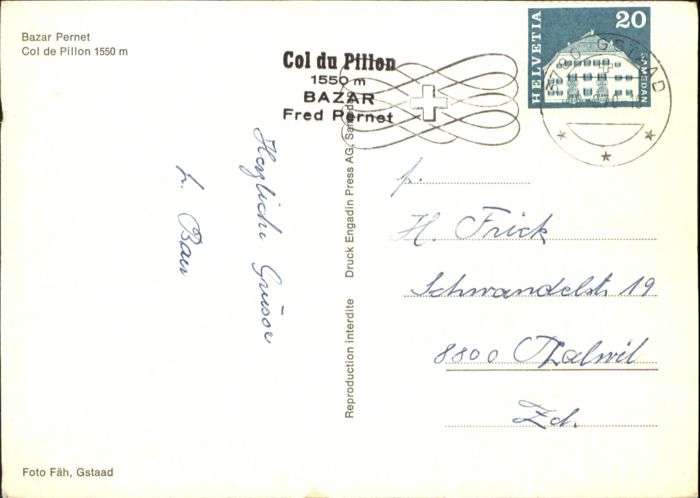 Bazar Pernet
Col de Pillon 1550 m
Col du Pillon
1550 m
BAZAR
Fred Pernet
HELVETIA
20
SAMEDAN
3780 GSTAAD
Herzliche Grüsse
Reproduction interdite Druck Engadin Press AG, Samedan
H. Frick
Schwandelstr. 19
8800 Thalwil
Zch.
Foto Fäh, Gstaad